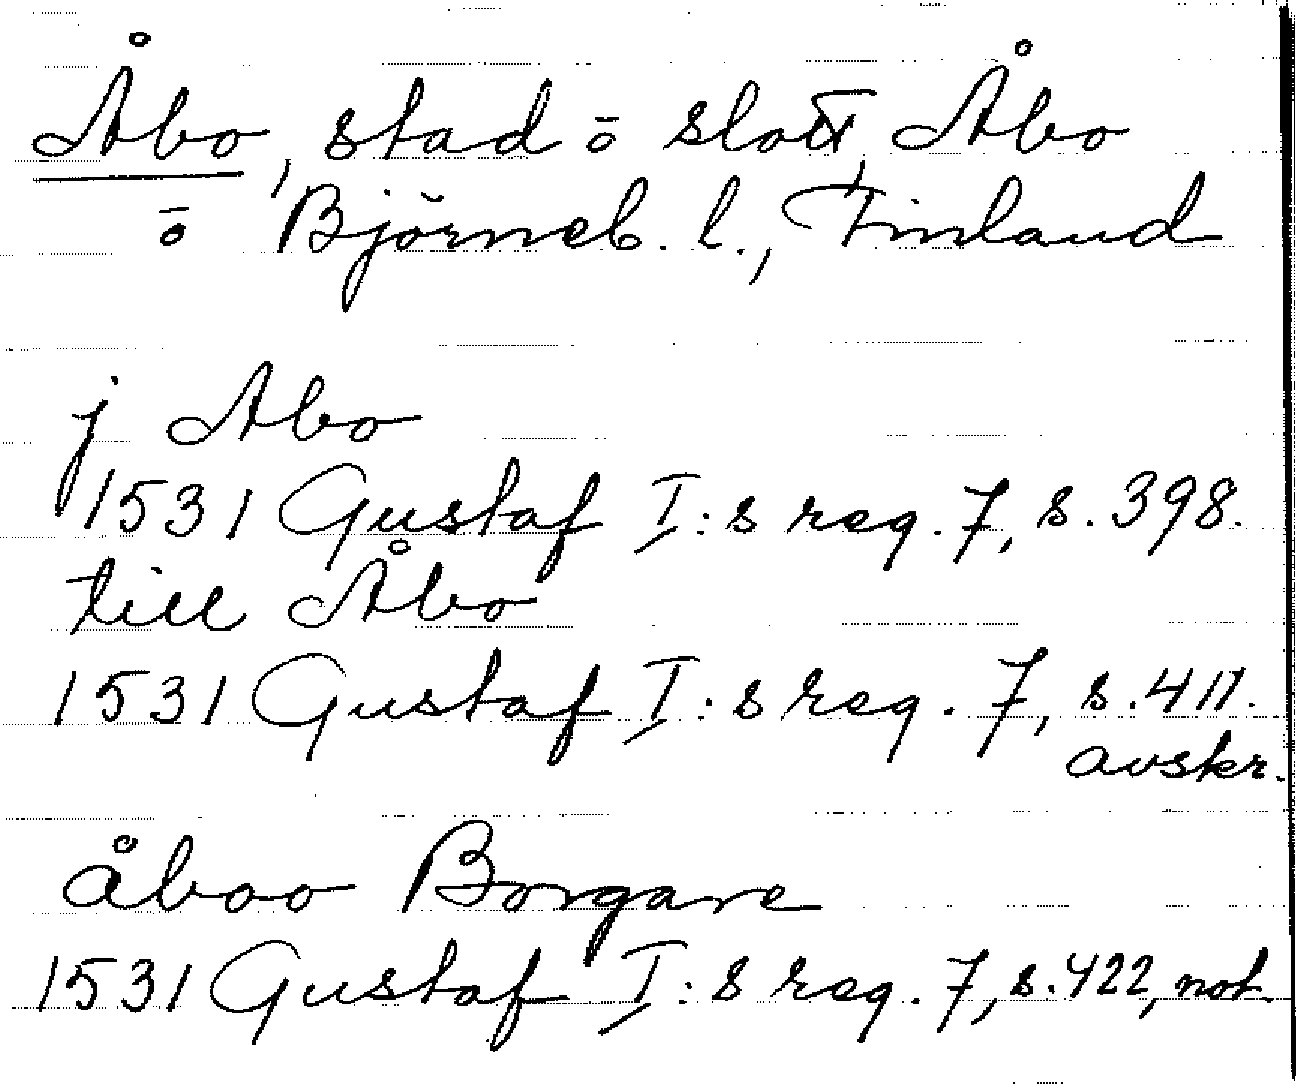 Åbo, stad ō slott, Åbo
ō Björneb. l., Finland
j Abo
1531 Gustaf I:s reg. 7, s. 398.
till Åbo
1531 Gustaf I:s reg. 7, s. 411.
avskr.
åboo Borgare
1531 Gustaf I:s reg. 7, s. 422, not.